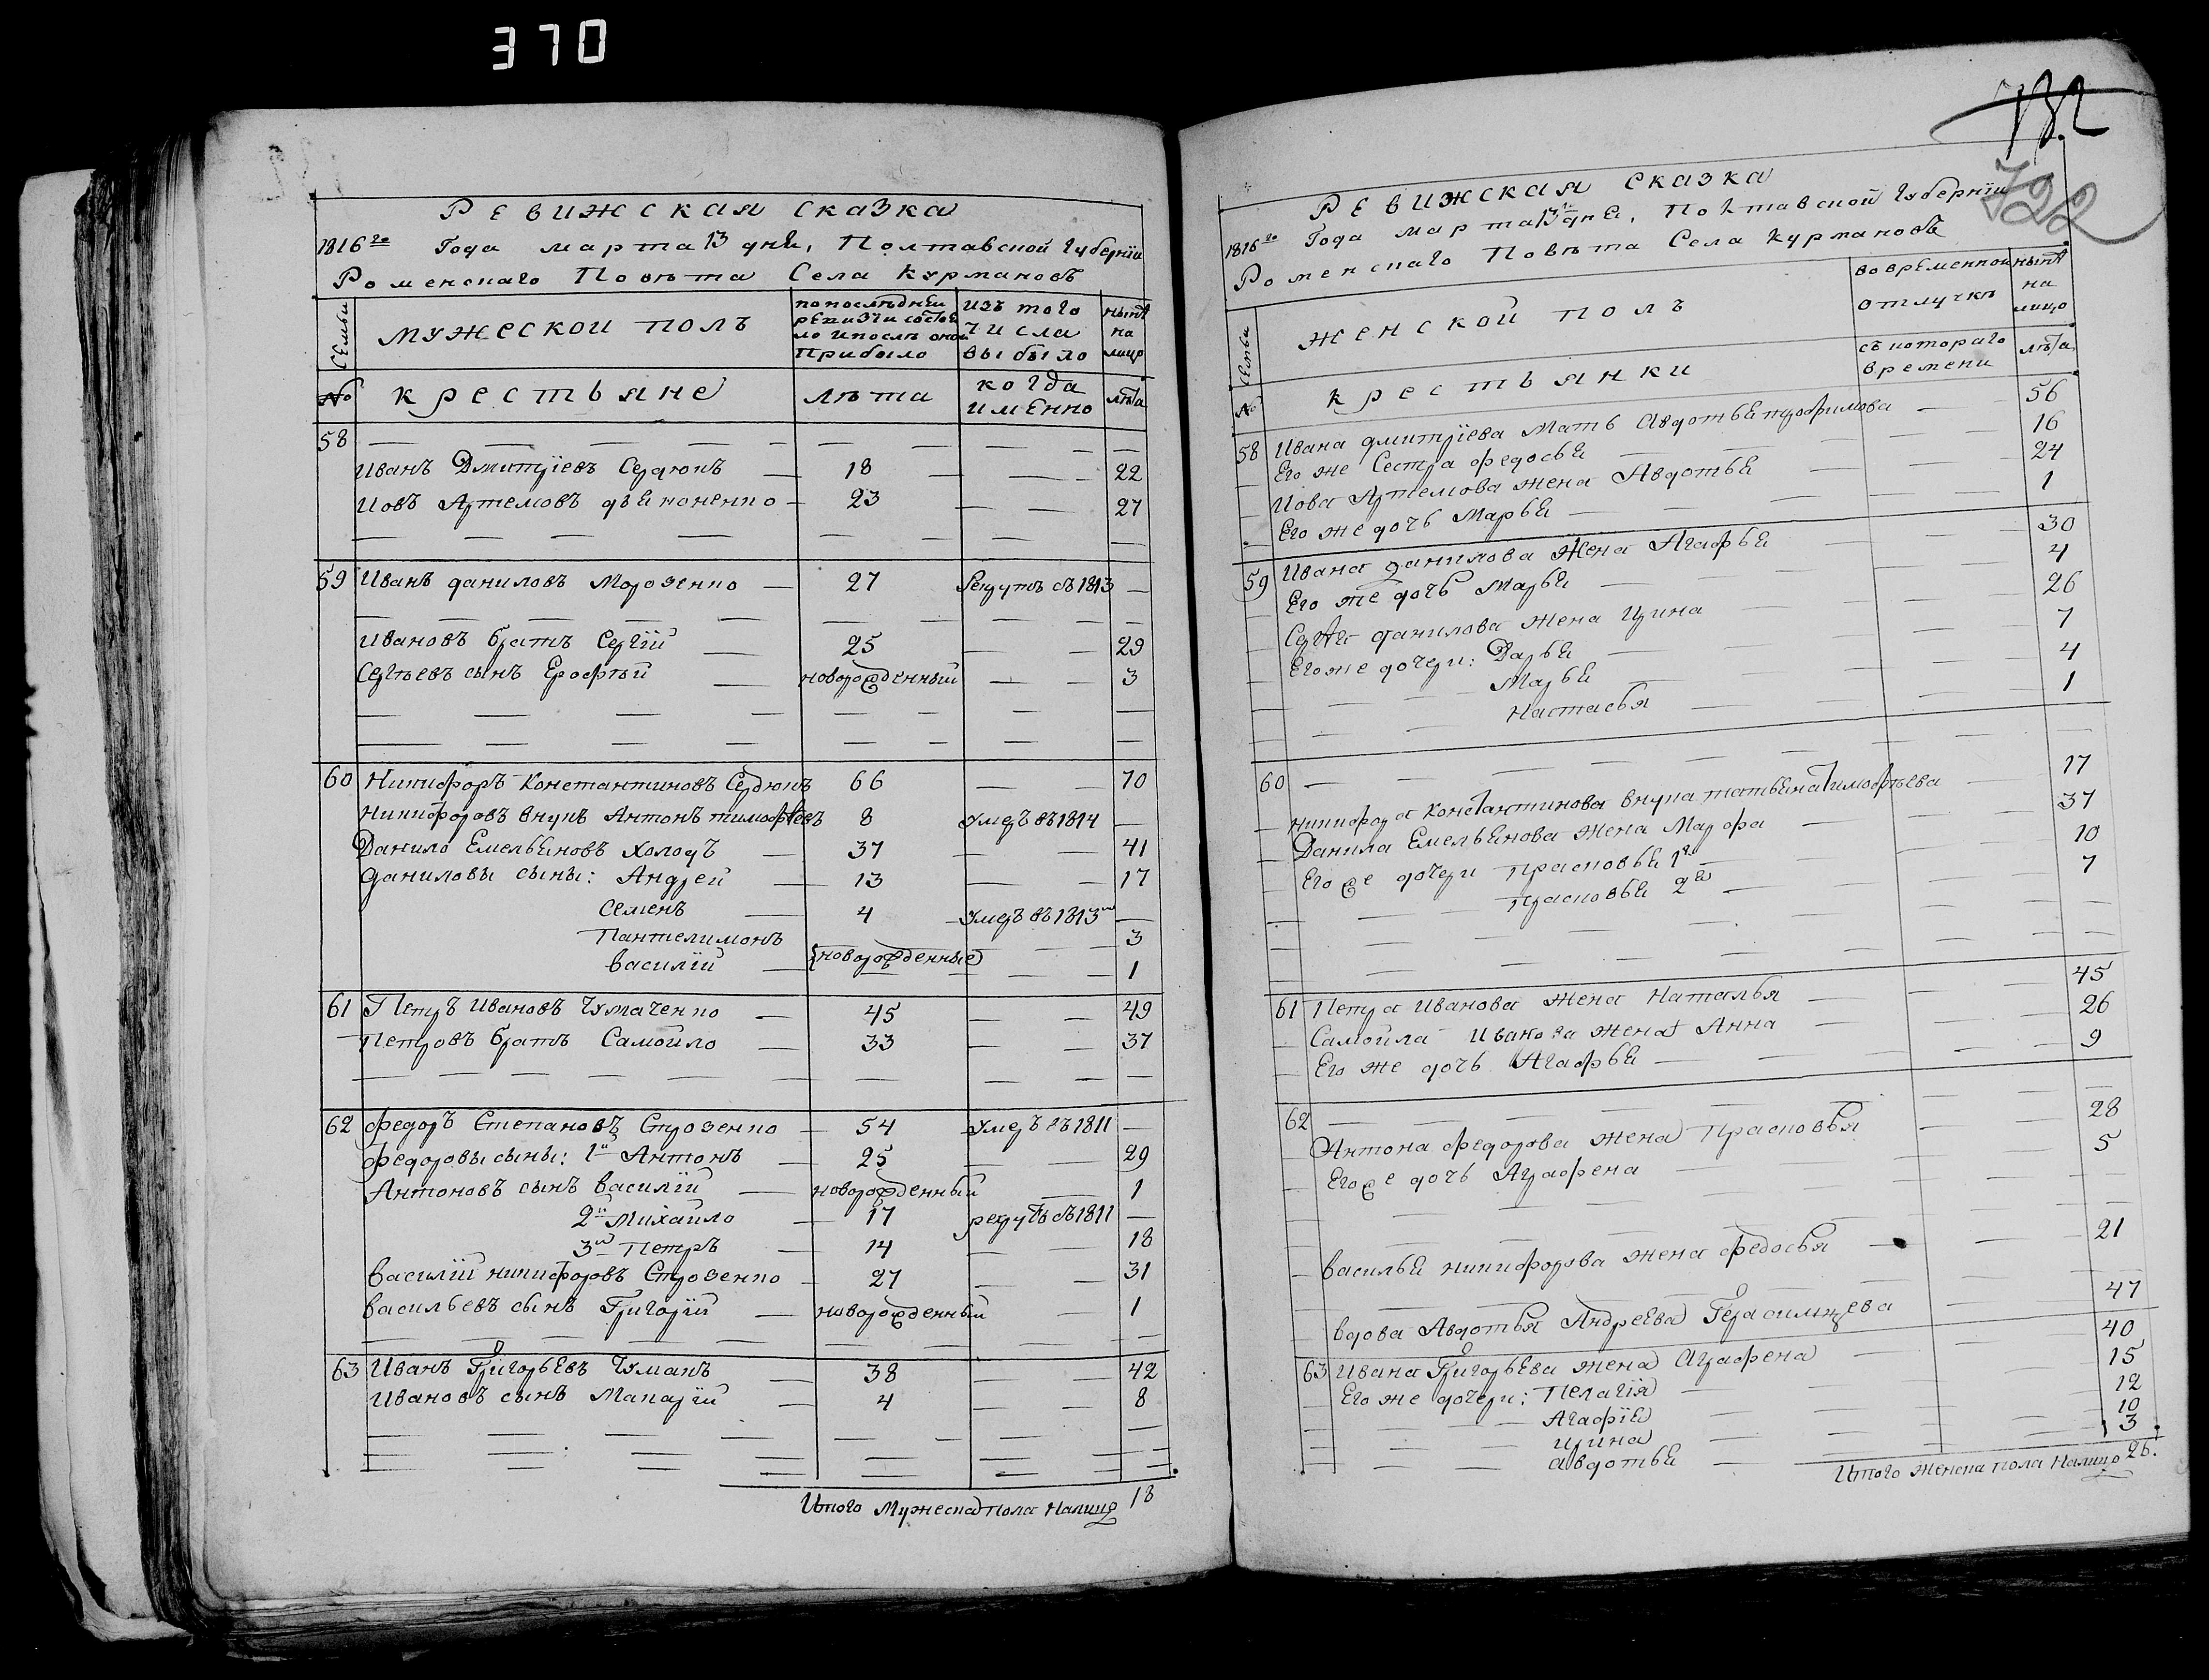 370
Ревижская сказка
1816го Года марта 13 дня, Полтавской Губернїи
Роменскаго Повѣта Села Курмановъ
Семьи
мужеской полъ
по послѣдней ревизїи состояло и послѣ оной прибыло
изъ того числа выбыло
нынѣ на лицо
№
крестьяне
лѣта
когда именно
лѣта
58
Иванъ Дмитрїевъ Сердюкъ — 18 — — 22
Иовъ Артемовъ дьяконенко — 23 — — 27
59 Иванъ даниловъ Морозенко — 27 Рекрутъ съ 1813 —
Ивановъ братъ Сергїй — 25 — — 29
Сергѣевъ сынъ Ерофѣй — новорожденный — — 3
60 Никифоръ Константиновъ Сердюкъ 66 — — 70
Никифоровъ внукъ Антонъ тимофѣевъ 8 умеръ въ 1814 —
Данило Емельяновъ холодъ — 37 — — 41
Даниловы сыны: Андрей — 13 — — 17
Семенъ — 4 умеръ въ 1813м —
Пантелимонъ 3
василїй — новорожденные — — 1
61 Петръ Ивановъ Чумаченко — 45 — — 49
Петровъ братъ Самойло — 33 — — 37
62 федоръ Степановъ Строзенко — 54 умеръ въ 1811 —
федоровы сыны: 1й Антонъ — 25 — — 29
Антоновъ сынъ василїй — новорожденный — 1
2й Михайло — 17 рекрутъ съ 1811 —
3й Петръ — 14 — — 18
василїй никифоровъ Строзенко — 27 — — 31
васильевъ сынъ Григорїй — новорожденный — 1
63 Иванъ Григорьевъ Чумакъ — 38 — — 42
Ивановъ сынъ Макарїй — 4 — — 8
Итого Мужеска пола налицо 18
732
722
Ревижская сказка
1816го Года марта 13го дня, Полтавской Губернїи
Роменскаго Повѣта Села Курмановъ
Семьи
женской полъ
во временной отлучкѣ
нынѣ на лицо
№
крестьянки
съ котораго времени
лѣта
58 Ивана дмитрїева Мать Авдотья трофимова — — 56
Его же Сестра федосья — — 16
Иова Артемова жена Авдотья — — 24
Его же дочь Марья — — 1
59 Ивана данилова Жена Агафья — — 30
Его же дочь Марья — — 4
Сергѣя данилова жена Ирина — — 26
Его же дочери: Дарья — — 7
Марья — — 4
Настасья — — 1
60
Никифора Константинова внука татьяна тимофѣева — 17
Данила Емельянова жена Марфа — — 37
Его же дочери Прасковья 1я — — 10
Прасковья 2я — — 7
61 Петра Иванова жена Наталья — — 45
Самойла Иванова жена Анна — — 26
Его же дочь Агафья — — 9
62
Антона федорова жена Прасковья — — 28
Его же дочь Аграфена — — 5
василья никифорова жена федосья — — 21
вдова Авдотья Андреева Герасимцева — — 47
63 Ивана Григорьева жена Аграфена — — 40
Его же дочери: Пелагїя — — 15
Агафїя — — 12
ирина — — 10
авдотья — — 3
Итого Женска пола налицо 26.